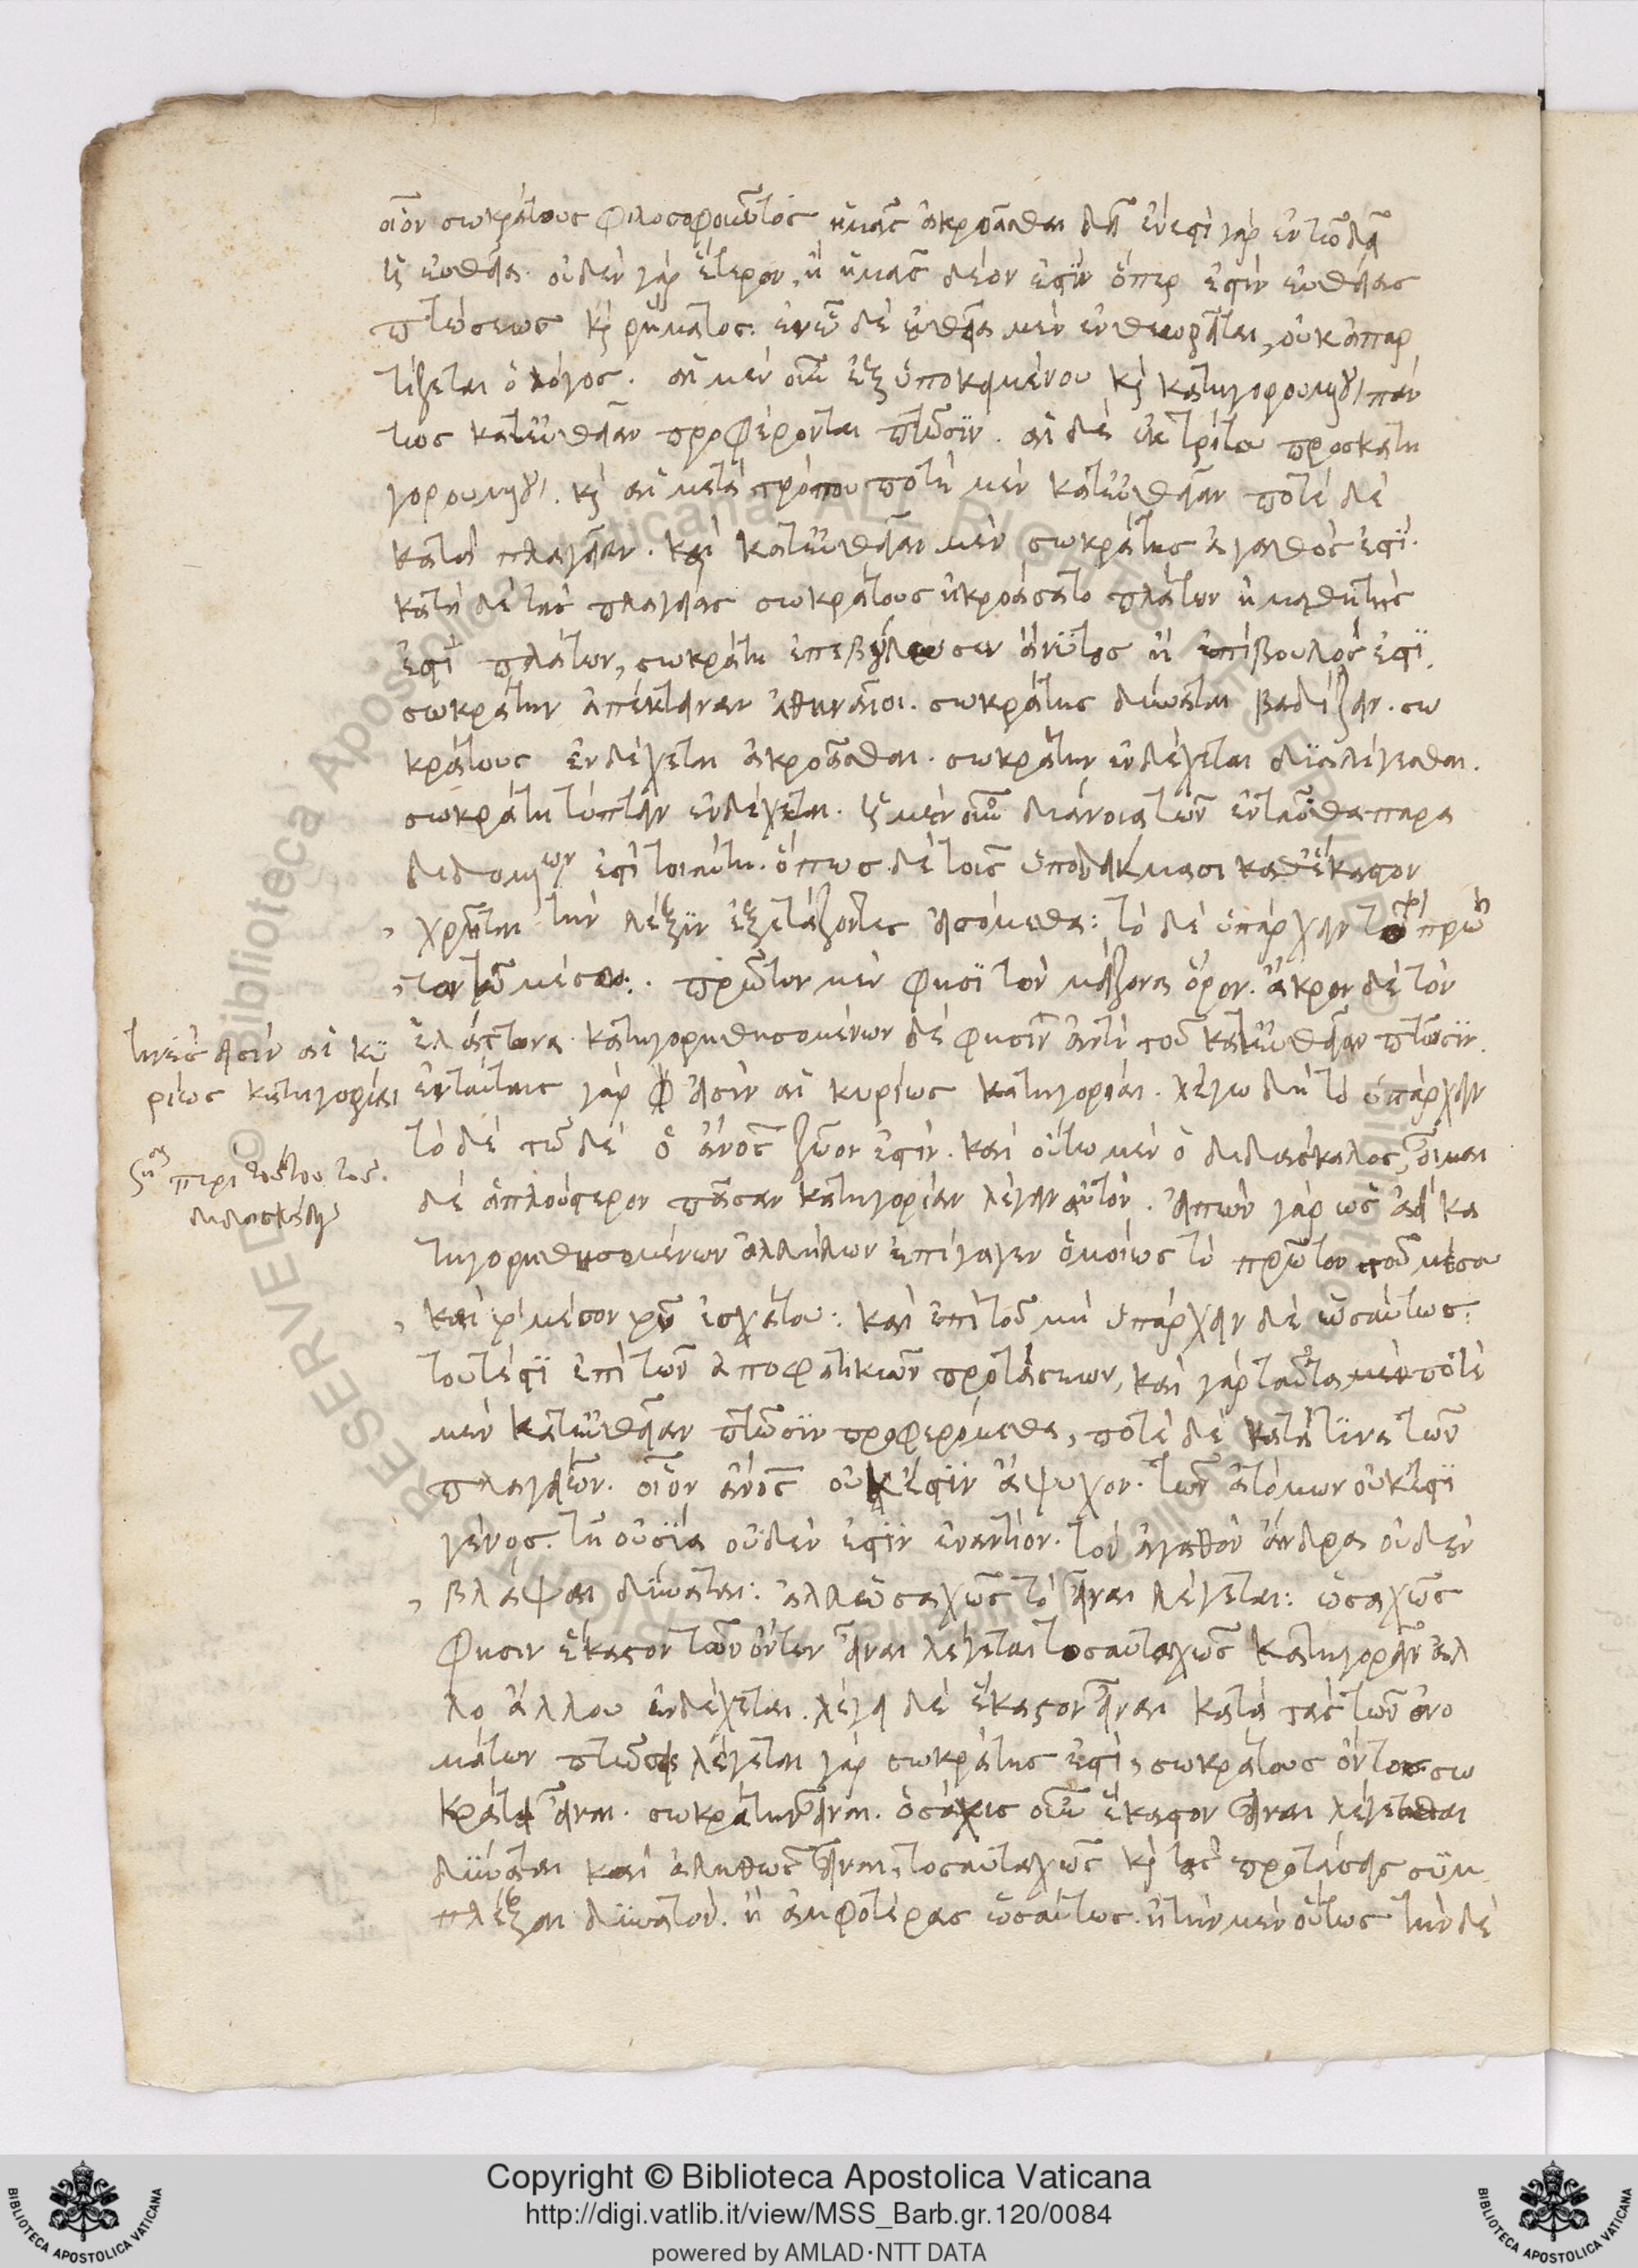 οἷον σωκράτους φιλοσοφοῦντος ἡμᾶς ἀκροᾶσθαι δεῖ ἔνεστι γὰρ ἐν τῷ δεῖ
ἡ εὐθεῖα. οὐδὲν γὰρ ἕτερον, ἢ ἡμᾶς δέον ἐστὶν ὅπερ ἐστὶν εὐθείας
πτώσεως κ ῥήματος. ἐν ᾧ δὲ εὐθεῖα μὲν ἐνθεωρεῖται, οὐκ ἀπαρ
τίζεται ὁ λόγος. αἱ μὲν οὖν ἐξ ὑποκειμένου κ κατηγορουμένου πάν
τως κατ' εὐθεῖαν προφέρονται πτῶσιν. αἱ δὲ ἐκ τρίτου προσκατη
γορουμένου. κ αἱ μετὰ τρόπου ποτὲ μὲν κατ' εὐθεῖαν ποτὲ δὲ
κατὰ πλαγίαν. καὶ κατ' εὐθεῖαν μὲν σωκράτης ἀγαθός ἐστι.
κατὰ δὲ τὰς πλαγίας σωκράτους ἠκροάσατο πλάτων ἢ μαθητής
ἐστι πλάτων, σωκράτη ἐπεβούλευσεν ἄνυτος ἢ ἐπίβουλός ἐστι.
σωκράτην ἀπέκτειναν ἀθηναῖοι. σωκράτης δύναται βαδίζειν. σω
κράτους ἐνδέχεται ἀκροᾶσθαι. σωκράτην ἐνδέχεται διαλέγεσθαι.
σωκράτη τύπτειν ἐνδέχεται. ἡ μὲν οὖν διάνοια τῶν ἐνταῦθα παρα
διδομένων ἐστὶ τοιαύτη. ὅπως δὲ τοῖς ὑποδείγμασι καθ' ἕκαστον
, χρῆται τὴν λέξιν ἐξετάζοντες εἰσόμεθα: τὸ δὲ ὑπάρχειν τὸ πρῶ
, τον τῷ μέσῳ:. πρῶτον μὲν φησὶ τὸν μείζονα ὅρον. ἄκρον δὲ τὸν
ἐλάττονα κατηγορηθησομένων δὲ φησὶν ἀντὶ τοῦ κατ' εὐθεῖαν πτῶσιν.
τίνες εἰσὶν αἱ κυ
ρίως κατηγορίαι
ἐν ταύταις γὰρ εἰσὶν αἱ κυρίως κατηγορίαι. λέγω δὴ τὸ ὑπάρχειν
τὸ δὲ τῷδε ὁ ἄνος ζῷον ἐστίν. καὶ οὕτω μὲν ὁ διδάσκαλος, οἶμαι
περὶ τούτου τοῦ
διδασκάλου
δὲ ἁπλούστερον πᾶσαν κατηγορίαν λέγειν αὐτόν. εἰπὼν γὰρ ὡς ἀεὶ κα
τηγορηθησομένων ἀλλήλων ἐπήγαγεν ὁμοίως τὸ πρῶτον τοῦ μέσου
, καὶ τὸ μέσον τοῦ ἐσχάτου: καὶ ἐπὶ τοῦ μὴ ὑπάρχειν δὲ ὡσαύτως:
τουτέστι ἐπὶ τῶν ἀποφατικῶν προτάσεων, καὶ γὰρ ταῦτα μὲν ποτὲ
μὲν κατ' εὐθεῖαν πτῶσιν προφερόμεθα, ποτὲ δὲ κατά τινα τῶν
πλαγίων. οἷον ἄνος οὐκ ἔστιν ἄψυχον. τῶν ἀτόμων οὐκ ἔστι
γένος. τῇ οὐσίᾳ οὐδέν ἐστιν ἐναντίον. τὸν ἀγαθὸν ἄνδρα οὐδὲν
, βλάψαι δύναται: ἀλλ' ὡσαχῶς τὸ εἶναι λέγεται: ὡσαχῶς
φησιν ἕκαστον τῶν ὄντων εἶναι λέγεται τοσαυταχῶς κατηγορεῖν ἀλ
λο ἄλλου ἐνδέχεται. λέγει δὲ ἕκαστον εἶναι κατὰ τὰς τῶν ὀνο
μάτων πτώσεις λέγεται γὰρ σωκράτης ἐστί, σωκράτους ὄντος σω
κράτει εἶναι. σωκράτην εἶναι. ὁσάκις οὖν ἕκαστον εἶναι λέγεσθαι
δύναται καὶ ἀληθῶς εἶναι, τοσαυταχῶς κ τὰς προτάσεις συμ
πλέξαι δυνατόν. ἢ ἀμφοτέρας ὡσαύτως. ἢ τὴν μὲν οὕτως τὴν δὲ
Copyright © Biblioteca Apostolica Vaticana
http://digi.vatlib.it/view/MSS_Barb.gr.120/0084
powered by AMLAD·NTT DATA